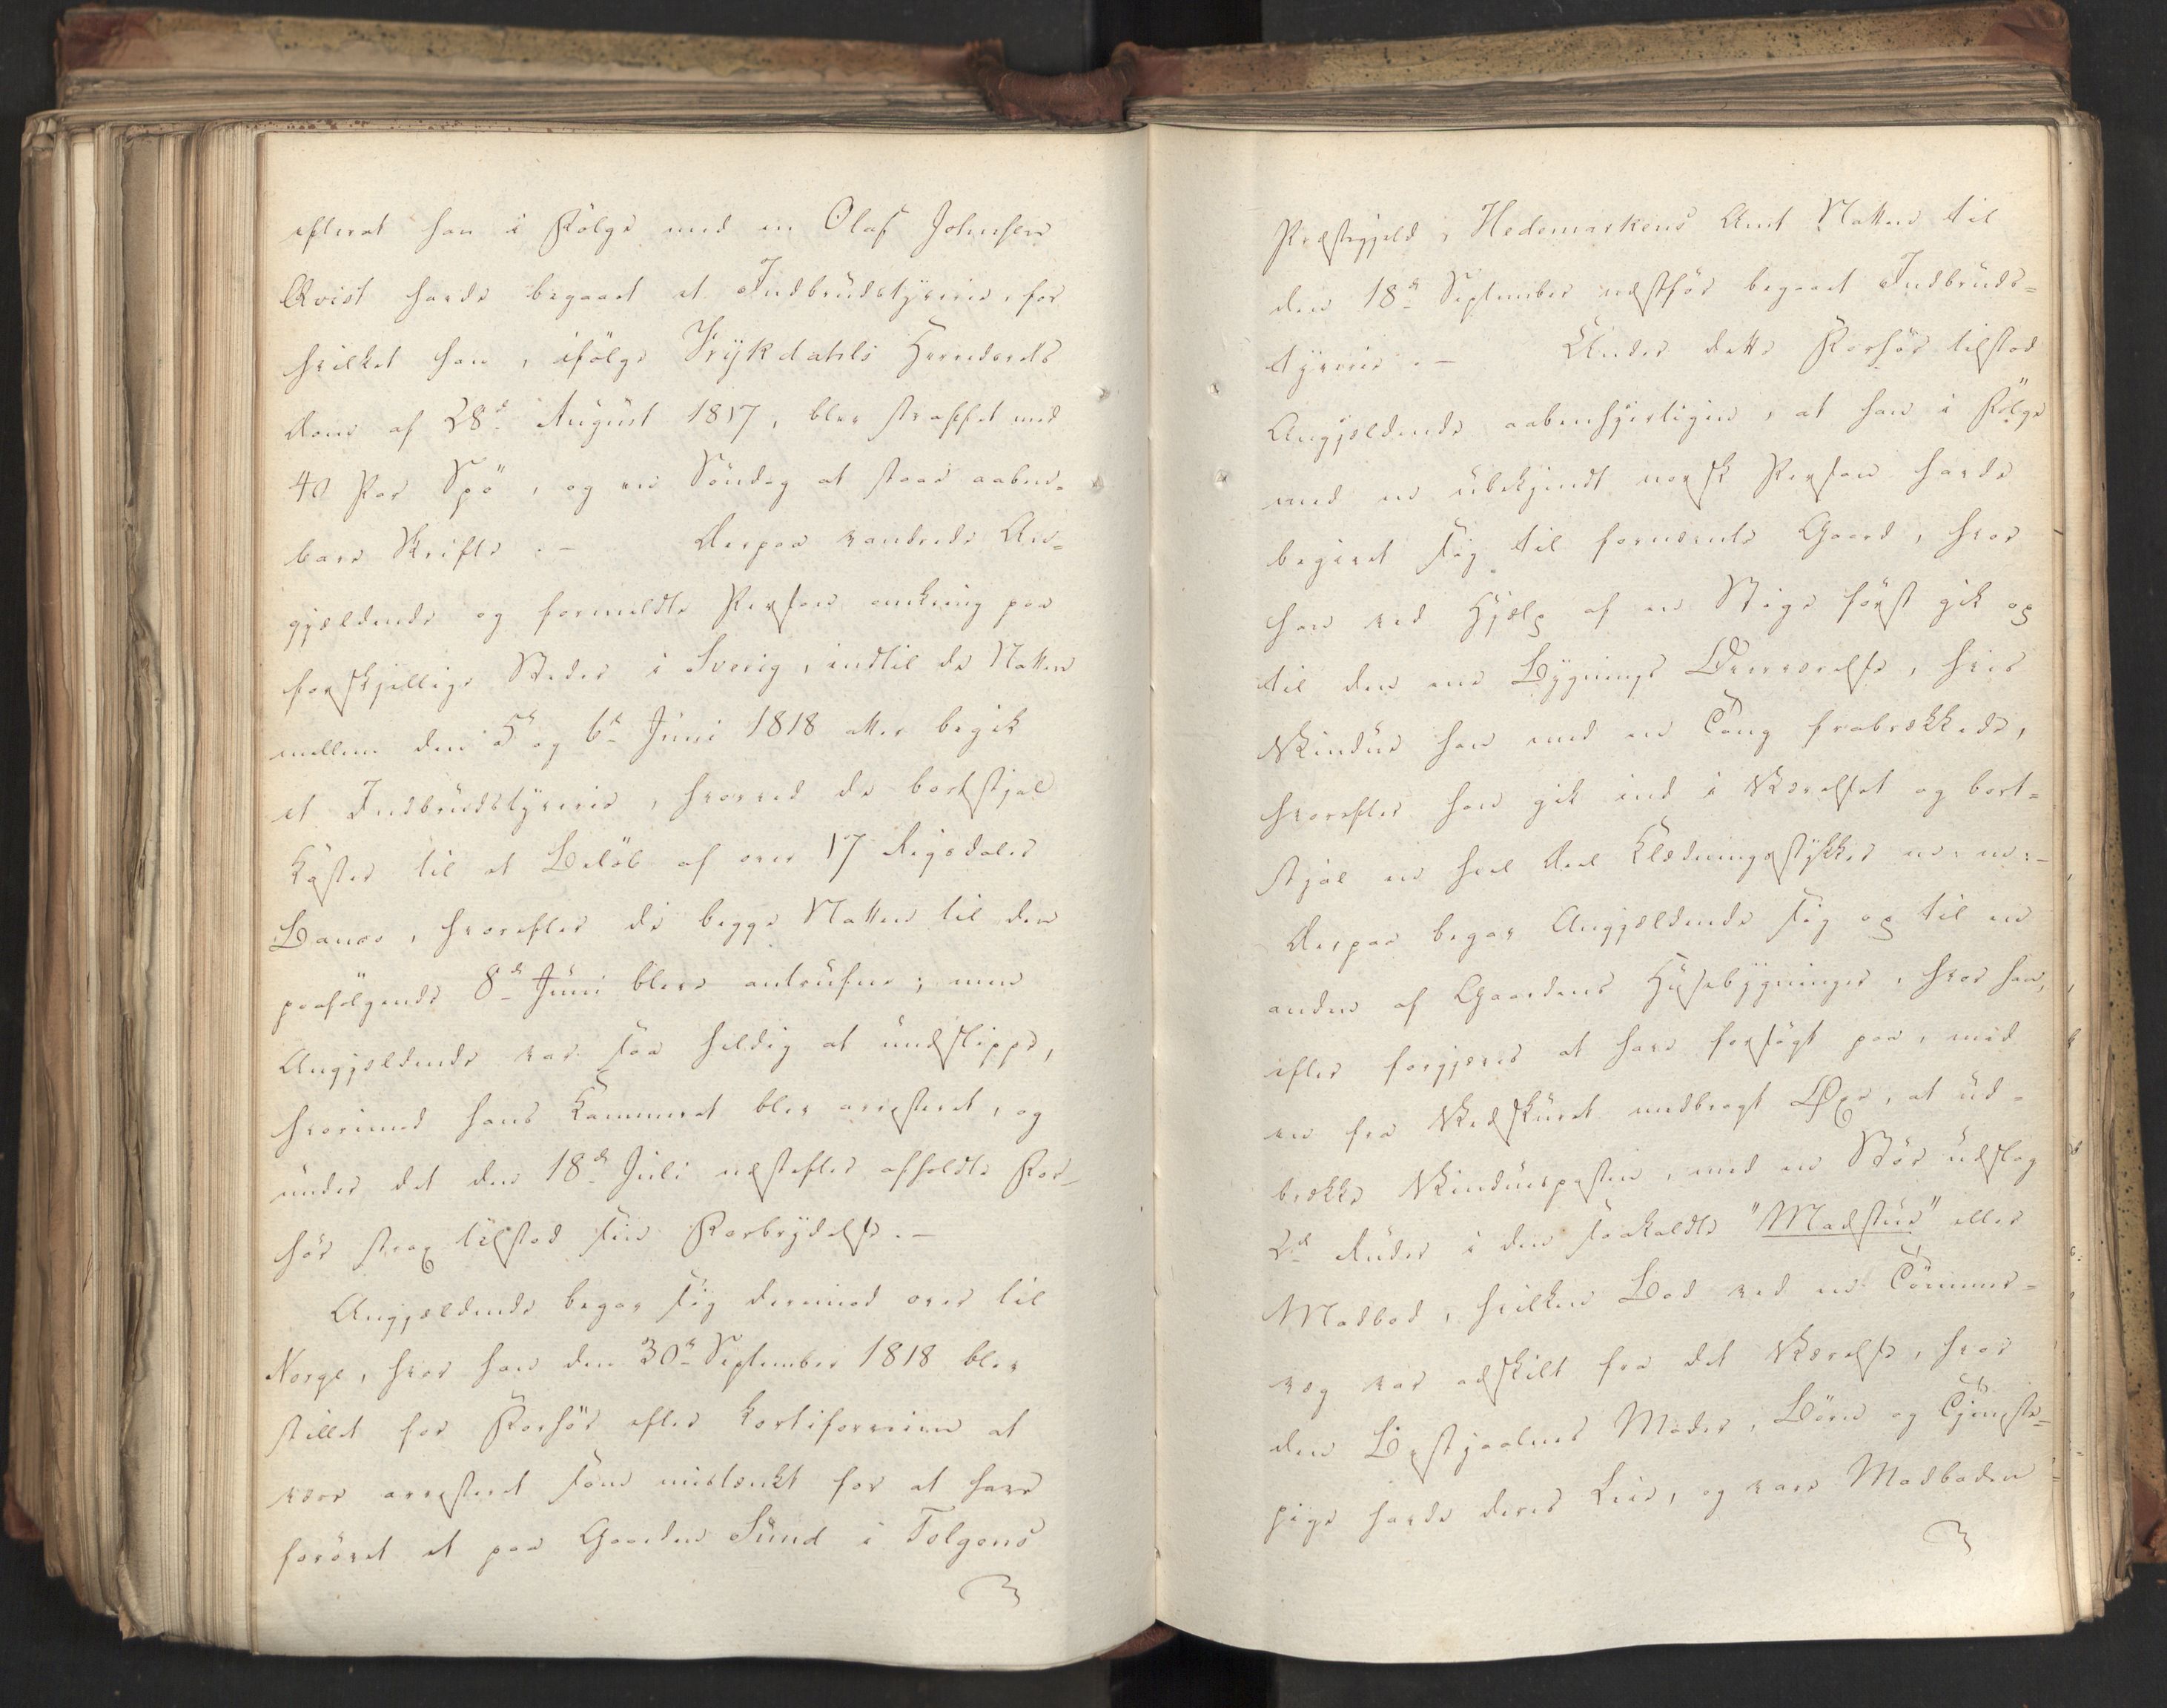 efterat han i Følge med en Olaf Johnsen
Qvist havde begaaet et Indbrudstyverie, for
hvilket han, ifølge Frykdahls Herreds
Dom af 28de August 1817, blev straffet med
40 Par Spö, og en Söndag at staae aaben-
bare Skrifte. – Derpaa vandrede An-
gjældende og formeldte Person omkring paa
forskjellige Steder i Sverig, indtil de Natten
mellem den 5te og 6te Juni 1818 atter begik
et Indbrudstyverie, hvorved de bortstjal
Koster til et Belöb af over 17 Rigsdaler
Banco, hvorefter de begge Natten til den
paafølgende 8de Juni bleve antrufne; men
Angjældende var saa heldig at undslippe,
hvorimod hans Kammerat blev arresteret, og
under det den 18de Juli næstefter afholdte For-
hör strax tilstod sin Forbrydelse. –
Angjældende begav sig derimod over til
Norge, hvor han den 30te September 1818 blev
stillet for Forhör efter forinden at
være arresteret som mistænkt for at have
forövet et paa Gaarden Sund i Tolgens
Præstegjeld, Hedemarkens Amt Natten til
den 18de September næstför begaaet Indbruds-
tyverie. – Under dette Forhör tilstod
Angjældende aabenhjertigen, at han i Følge
med en ubekjendt norsk Person havde
begivet sig til fornævnte Gaard, hvor
han ved Hjælp af en Stige först gik op
til den ene Bygnings Overværelse, hvis
Vindue han med en Tang frabrækkede,
hvorefter han gik ind i Værelset og bort-
stjal en heel Deel Klædningsstykker m: m: –
Derpaa begav Angjældende sig op til en
anden af Gaardens Huusebygninger, hvor han,
efter forgjæves at have forsögt paa, med
en fra Vedskuret medbragt Øxe, at ud-
brække Vinduesposten, med en Stör udslog
2de Ruder i den saakaldte "Madstue" eller
Madbod, hvilken Bod ved en Tömmer-
væg var adskilt fra det Værelse, hvor
den Bestjaalnes Moder, Börn og Tjeneste-
pige havde deres Leie, og vare Madboden